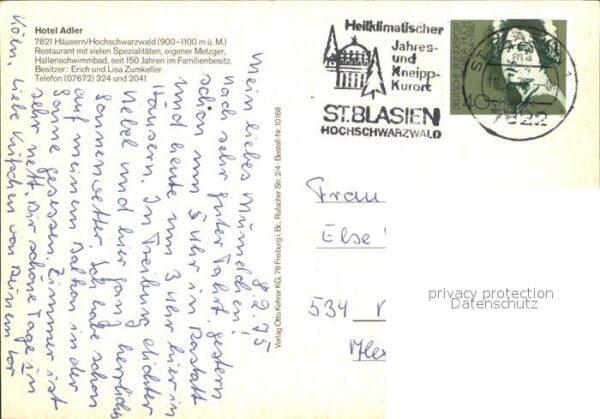 Hotel Adler
7821 Häusern/Hochschwarzwald (900–1100 m ü. M.)
Restaurant mit vielen Spezialitäten, eigener Metzger,
Hallenschwimmbad, seit 150 Jahren im Familienbesitz.
Besitzer: Erich und Lisa Zumkeller
Telefon (07672) 324 und 2041
8.2.75
Mein liebes Mümmelchen!
nach sehr guter Fahrt, gestern
schon um 5 Uhr in Rastatt
und heute um 3 Uhr hier in
Häusern. In Freiburg dichter
Nebel und hier ganz herrliches
Sonnenwetter. Ich habe schon
auf meinem Balkon in der
Sonne gesessen. Zimmer ist
sehr nett. Dir schöne Tage in
Köln. Liebe Küßchen von Deinem
Verlag Otto Kehrer KG, 78 Freiburg i. Br., Rufacher Str. 2/4 · Bestell-Nr. 10 168
Heilklimatischer
Jahres-
und
Kneipp-
Kurort
ST. BLASIEN
HOCHSCHWARZWALD
DEUTSCHE BUNDESPOST
40
7822
Frau
Else
534
privacy protection
Datenschutz